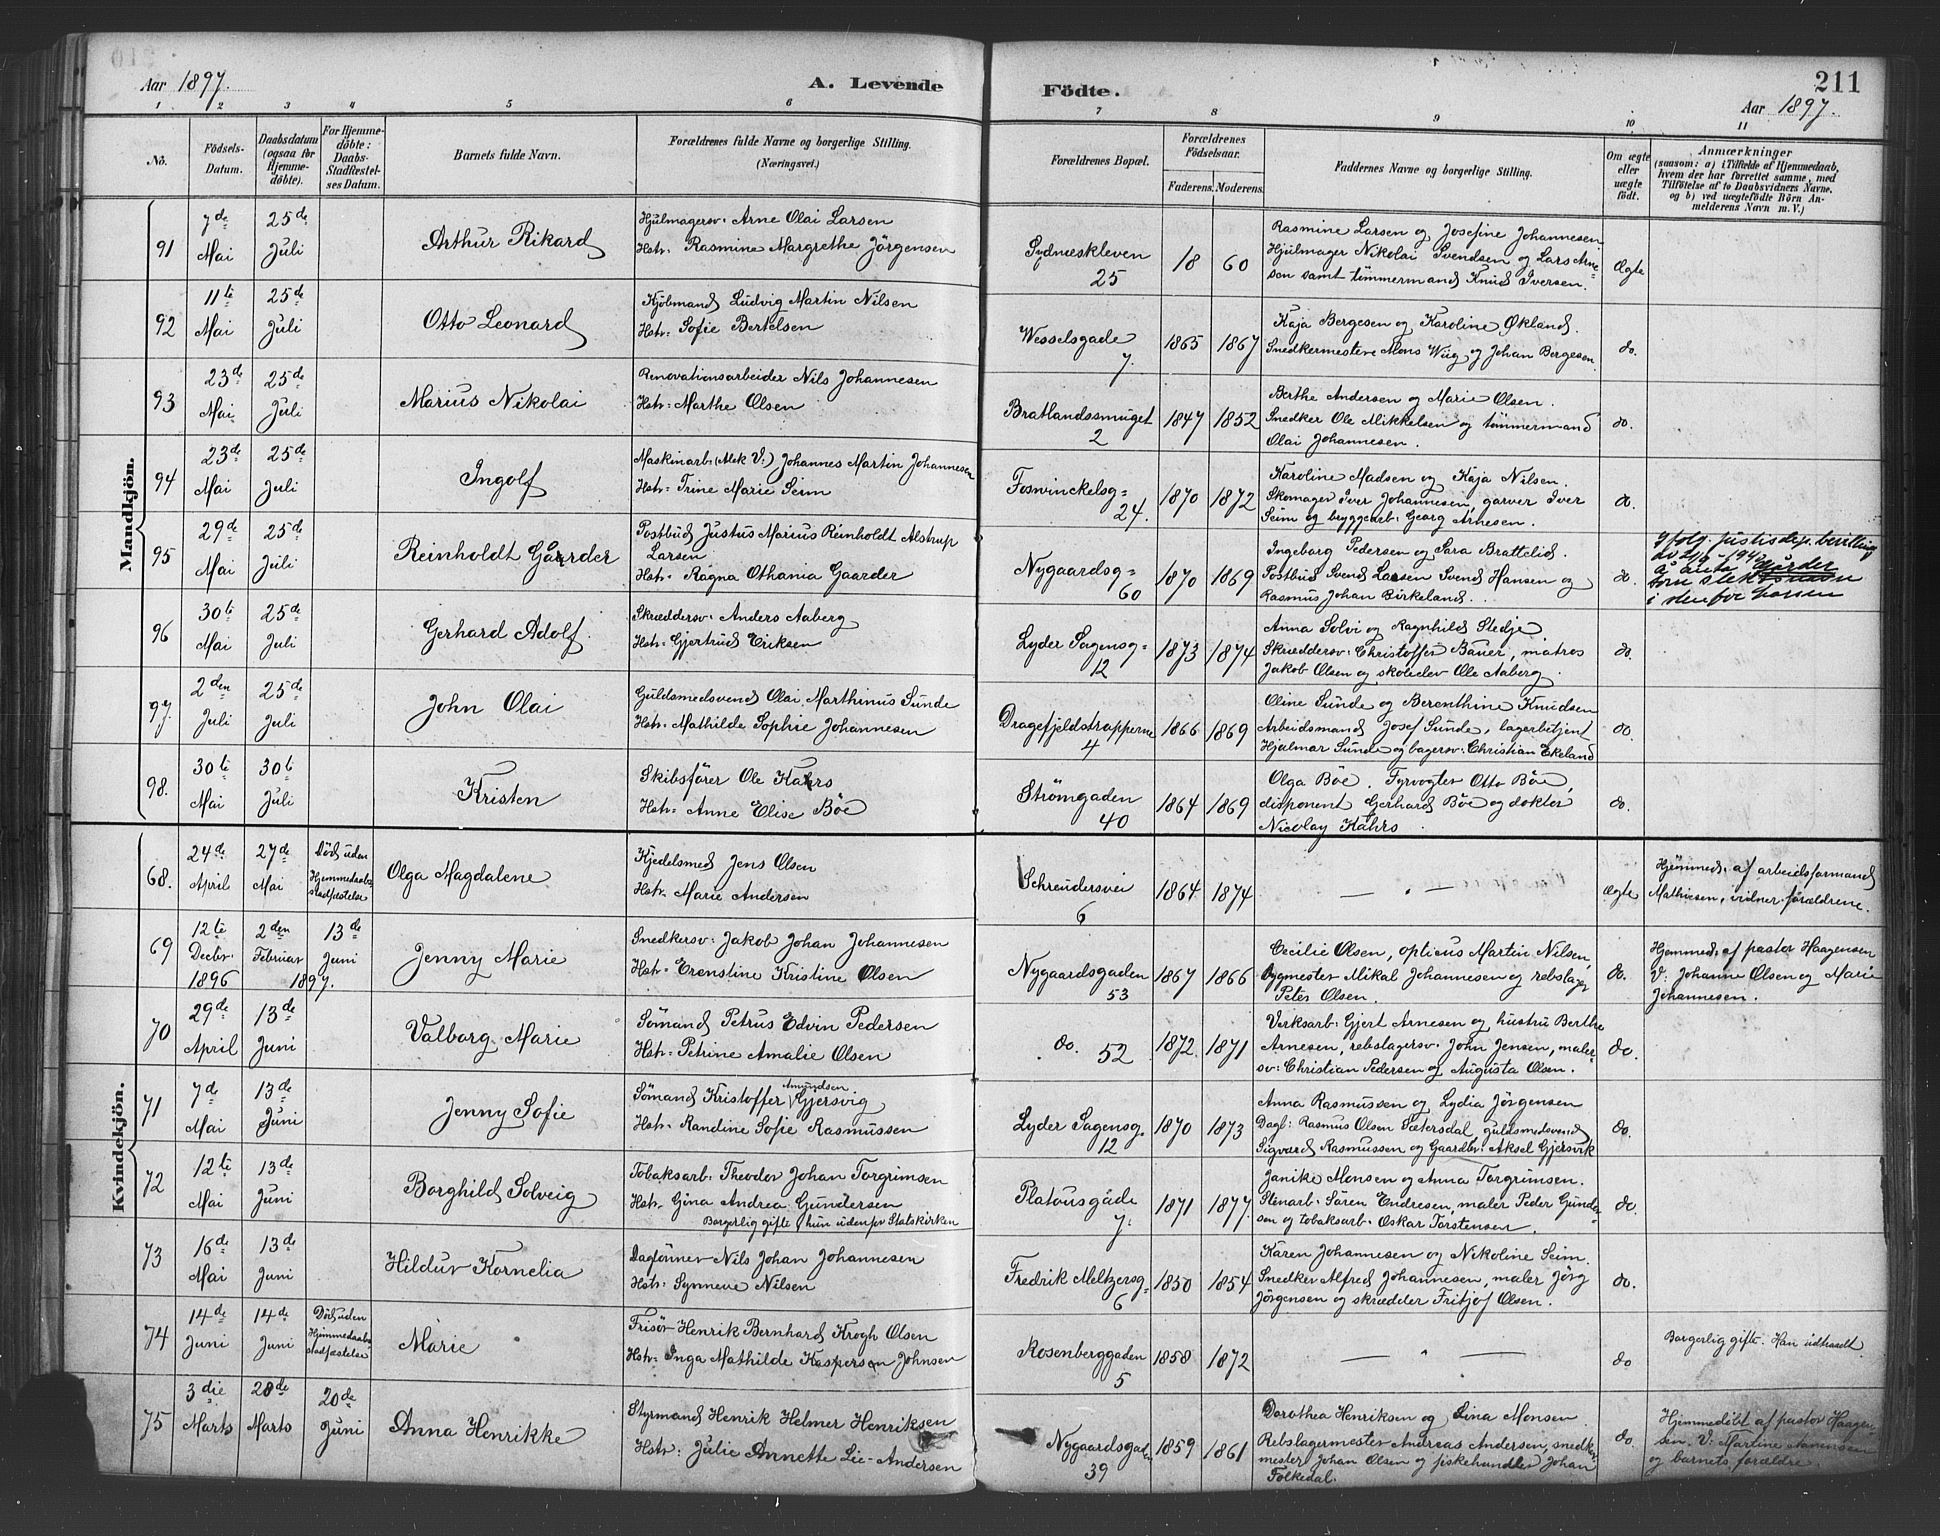 Aar 1897. A. Levende Födte. 211
Aar 1897.
1 2 3 4 5 6 7 8 9 10 11
No.
Födsels-Datum.
Daabsdatum (ogsaa for Hjemme-döbte).
For Hjemme-döbte: Daabs-Stadfæstel-ses Datum.
Barnets fulde Navn.
Forældrenes fulde Navne og borgerlige Stilling. (Næringsvei.)
Forældrenes Bopæl.
Forældrenes Födselsaar.
Faderens. Moderens.
Faddernes Navne og borgerlige Stilling.
Om ægte eller uægte födt.
Anmærkninger (saasom: a) i Tilfælde af Hjemmedaab, hvem der har forrettet samme, med Tilföielse af to Daabsvidners Navne, og b) ved uægtefödte Börn An-melderens Navn m. V.)
Mandkjön.
91 7de Mai 25de Juli Arthur Rikard
Hjulmagersv: Arne Olai Larsen
Hstr: Rasmine Margrethe Jörgensen
Sydneskleven 25 18 60
Rasmine Larsen og Josefine Johannesen
Hjulmager Nikolai Svendsen og Lars Arne-
son samt tömmermand Knud Iversen. Ægte
92 11te Mai 25de Juli Otto Leonard
Kjöbmand Ludvig Martin Nilsen
Hstr: Sofie Bertelsen
Wesselsgade 7. 1865 1867
Kaja Bergesen og Karoline Økland.
Snedkermestere Mons Wiig og Johan Bergesen do.
93 23de Mai 25de Juli Marius Nikolai
Renovationsarbeider Nils Johannesen
Hstr: Marthe Olsen
Bratlandssmuget 2 1847 1852
Berthe Andersen og Marie Olsen.
Snedker Ole Mikkelsen og tömmermand
Olai Johannesen. do.
94 23de Mai 25de Juli Ingolf
Maskinarb: (Mek V:) Johannes Martin Johannesen
Hstr: Trine Marie Seim
Fosvinckelsg= 24. 1870 1872
Karoline Madsen og Kaja Nilsen.
Skomager Iver Johannesen, garver Iver
Seim og bryggearb: Georg Arnesen. do.
95 29de Mai 25de Juli Reinholdt Gaarder
Postbud Justus Marius Reinholdt Alstrup
Larsen
Hstr: Ragna Othania Gaarder
Nygaardsg= 60 1870 1869
Ingeborg Pedersen og Sara Brattelid.
Postbud Svend Larsen Svend Hansen og
Rasmus Johan Birkeland. do.
Ifölg. justisdep. bevilling
Gårder
som slektsnavn
i stedfor Larsen
96 30te Mai 25de Juli Gerhard Adolf.
Skræddersv: Anders Aaberg
Hstr: Gjertrud Eriksen
Lyder Sagensg= 12 1873 1874
Anna Solvi og Ragnhild Stedje.
Skræddersv: Christoffer Bauer, matros
Jakob Olsen og skoleelev Ole Aaberg. do.
97. 2den Juli 25de Juli John Olai
Guldsmedsvend Olai Marthinus Sunde
Hstr: Mathilde Sophie Johannesen
Dragefjeldstrapperne 4 1866 1869
Oline Sunde og Berenthine Knudsen
Arbeidsmand Josef Sunde, lagerbetjent
Hjalmar Sunde og bagersv: Christian Ekeland do.
98. 30te Mai 30te Juli Kristen
Skibsförer Ole Kahrs
Hstr: Anne Elise Böe
Strömgaden 40 1864 1869
Olga Böe. Fyrvogter Otto Böe,
disponent Gerhard Böe og doktor
Nicolay Kahrs. do.
Kvindekjön.
68. 24de April 27de Mai Död uden Hjemmedaabs stadfæstelse Olga Magdalene
Kjedelsmed Jens Olsen
Hstr: Marie Andersen
Schreudersvei 6 1864 1874 — " — Ægte
Hjemmed: af arbeidsformand
Mathiesen, vidner forældrene.
69 12te Decbr. 1896 2den Februar 1897. 13de Juni Jenny Marie
Snedkersv: Jakob Johan Johannesen
Hstr: Erenstine Kristine Olsen
Nygaardsgaden 53 1867 1866
Cecilie Olsen, opticus Martin Nilsen,
bygmester Mikal Johannesen og rebslager
Peter Olsen. do.
Hjemmed: af pastor Haagensen
V. Johanne Olsen og Marie
Johannesen.
70 29de April 13de Juni Valborg Marie
Sömand Petrus Edvin Pedersen
Hstr: Petrine Amalie Olsen
do. 52 1872. 1871
Verksarb: Gjert Arnesen og hustru Berthe
Arnesen, rebslagersv: John Jensen, maler-
sv: Christian Pedersen og Augusta Olsen. do.
71 7de Mai 13de Juni Jenny Sofie
Sömand Kristoffer Amundsen Gjersvig
Hstr: Randine Sofie Rasmussen
Lyder Sagensg. 12 1870 1873
Anna Rasmussen og Lydia Jörgensen
Dagl: Rasmus Olsen Sætersdal, guldsmedsvend
Sigvard Rasmussen og Gaardbr: Aksel Gjersvik do.
72 12te Mai 13de Juni Borghild Solveig
Tobaksarb: Theodor Johan Torgrimsen
Hstr. Gina Andrea Gundersen
Borgerlig gifte, hun udenfor Statskirken
Platousgade 7. 1871 1877.
Janike Monsen og Anna Torgrimsen.
Stenarb: Sören Endresen, maler Peder Gunder-
sen og tobaksarb: Oskar Torstensen. do.
73 16de Mai 13de Juni Hildur Kornelia
Dagförner Nils Johan Johannesen
Hstr: Synneve Nilsen
Fredrik Meltzersg= 6 1850 1854
Karen Johannesen og Nikoline Seim.
Snedker Alfred Johannesen, maler Jörg
Jörgensen og skrædder Fritjof Olsen. do.
74 14de Juni 14de Juni Död uden Hjemmedaabs stadfæstelse Marie
Frisör Henrik Bernhard Krogh Olsen
Hstr: Inga Mathilde Kasperson Johnsen
Rosenberggaden 5 1858 1872 — " — do
Borgerlig gifte. Han udtraadt.
75 3die Marts 28de Marts 20de Juni Anna Henrikke
Styrmand Henrik Helmer Henriksen
Hstr: Julie Annette Lie-Andersen
Nygaardsgaden 39 1859 1861
Dorothea Henriksen og Lina Monsen.
Rebslagermester Andreas Andersen, snedker-
mester Johan Olsen og fiskehandler Johan
Folkedal. do.
Hjemmedöbt af pastor Haagen-
sen. V: Martine
og barnets forældre.